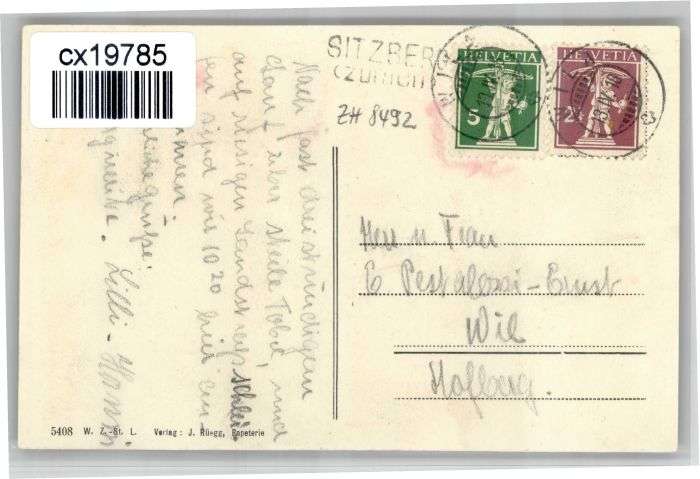 cx19785
SITZBERG
(ZÜRICH)
HELVETIA
5
HELVETIA
2½
ZH 8492
Nach fast drei stündigem
Lauf über steile Tobel, und
auf riesigen Landstraßen
sind wir 10 20 hier
Lilli - Hanni
Herr u Frau
E Pestalozzi-Ernst
Wil
Hofberg.
5408 W. Z.-St. L. Verlag: J. Rüegg, Papeterie